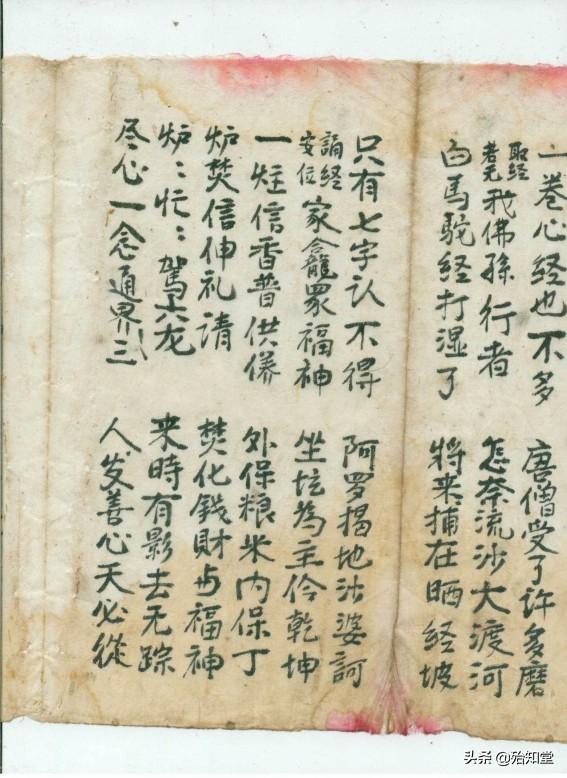 一卷心经也不多 唐僧受了许多磨
取经者无我佛孫行者 怎奈流沙大渡河
白马駝经打湿了 將来捕在晒经坡
只有七字认不得 阿罗揭地沙婆訶
誦经安位家合龕眾福神 坐坛為主伶乾坤
一炷信香普供养 外保粮米内保丁
炉焚信伸礼请 焚化錢財与福神
炉：忙：駕六龙 来時有影去无踪
尽心一念通界三 人发善心天必從
头条 @殆知堂